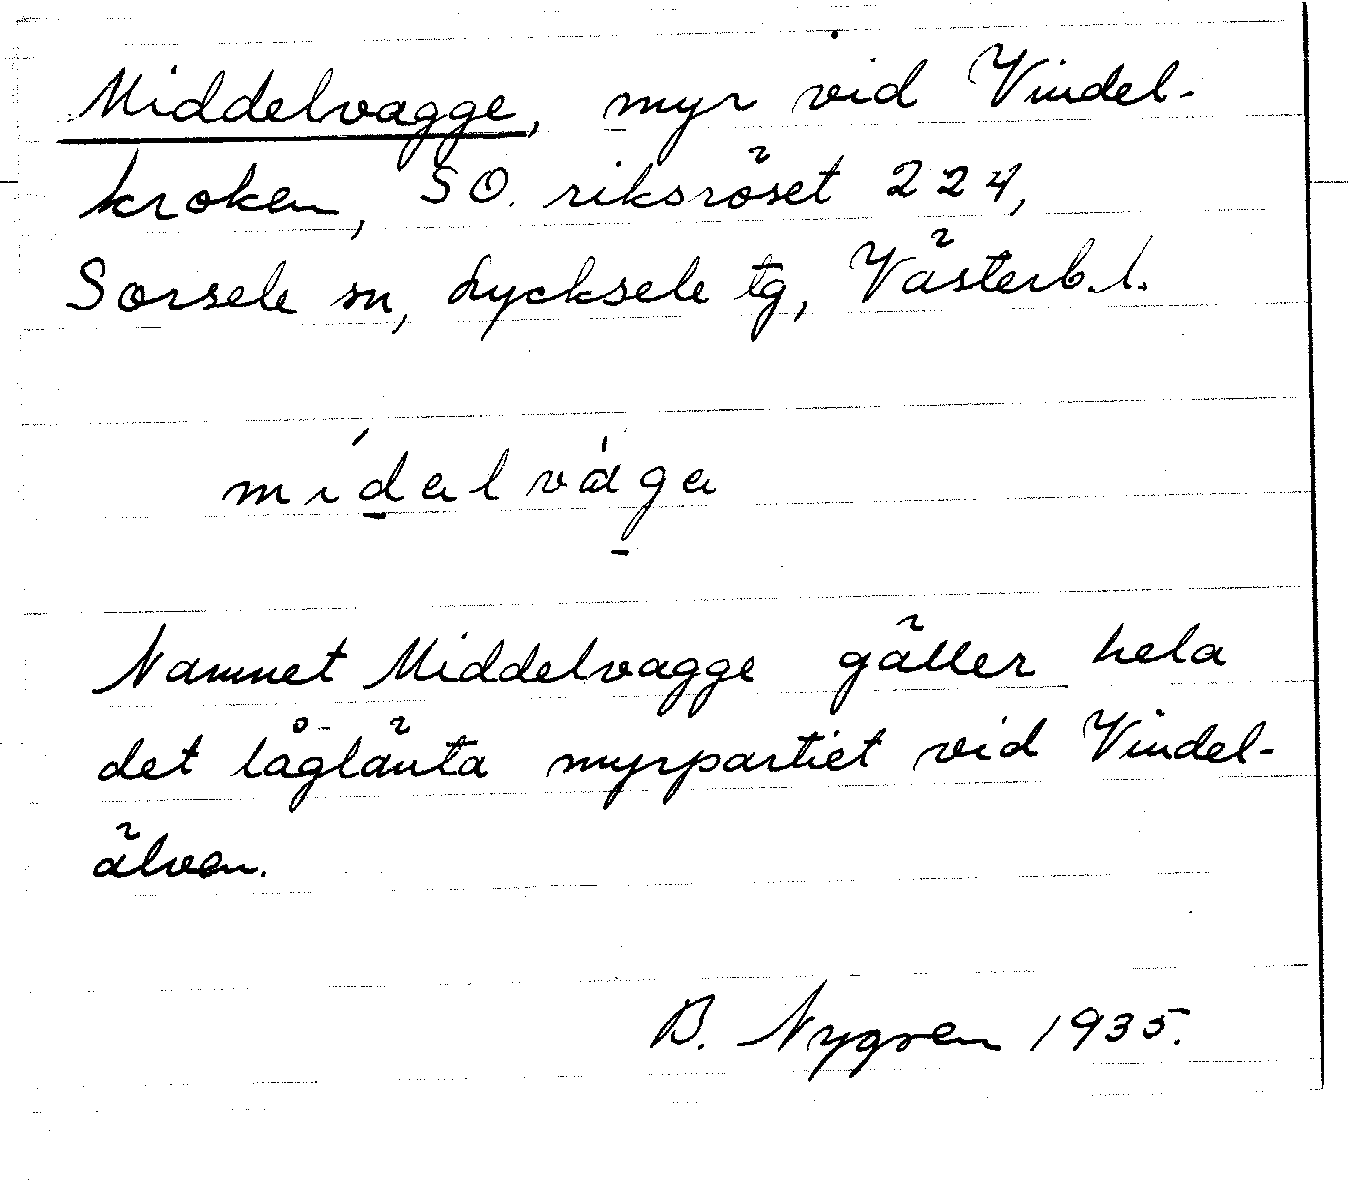 Middelvagge, myr vid Vindel-
kroken, SO. riksröset 224,
Sorsele sn, Lycksele tg, Västerb.l.
mídalvága
Namnet Middelvagge gäller hela
det låglänta myrpartiet vid Vindel-
älven.
B. Nygren 1935.